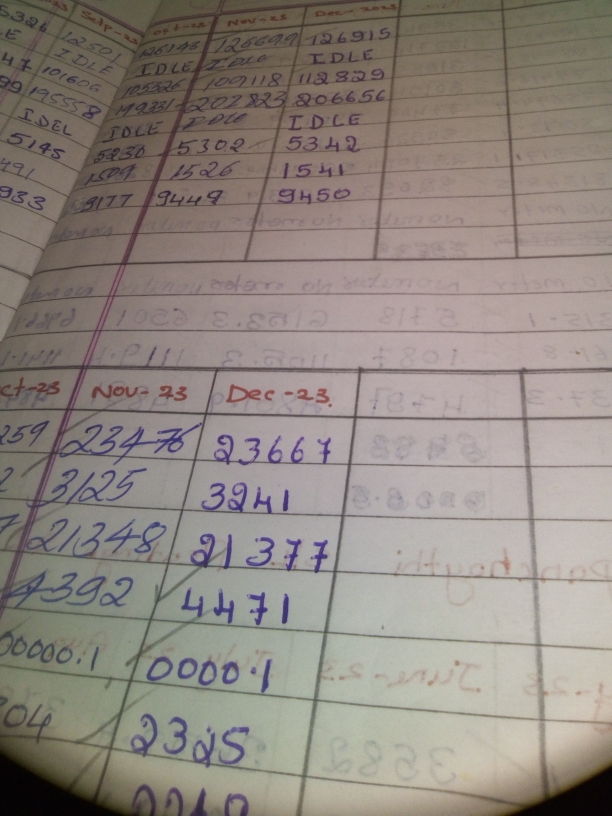 Setp-23 Oct-23 Nov-23 Dec-2023
5326 12501 126699 126915
IDLE IDLE IDLE IDLE
47 101606 105326 109118 112829
99 195558 202823 206656
IDEL IDLE IDLE IDLE
5195 5230 5302 5342
491 1509 1526 1541
933 9177 9449 9450
ct-23 Nov-23 Dec-23.
259 23476 23667
2 3125 3241
7 21348 21377
4392 4471
00000.1 0000.1
04 2325